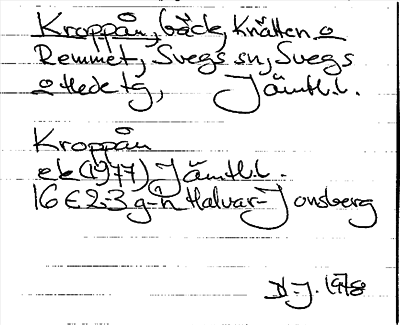 Kroppån, bäck, Knätten o
Remmet, Svegs sn, Svegs
o Hede tg, Jämtl.l.
Kroppån
ek (1977) Jämtl.l.
16 E 2-3 g-h Halvar-Jonsberg
D-J. 1978